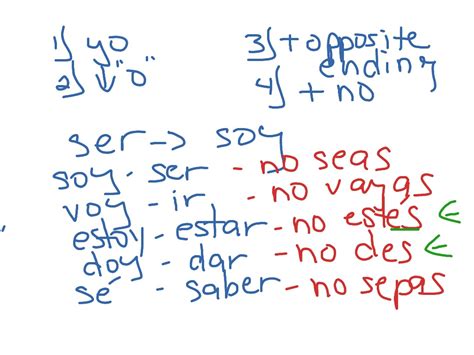 1) yo
2) ↓"o"
3) + opposite
ending
4) + no
ser → soy
soy - ser - no seas
voy - ir - no vayas
estoy - estar - no estés ←
doy - dar - no des ←
sé - saber - no sepas